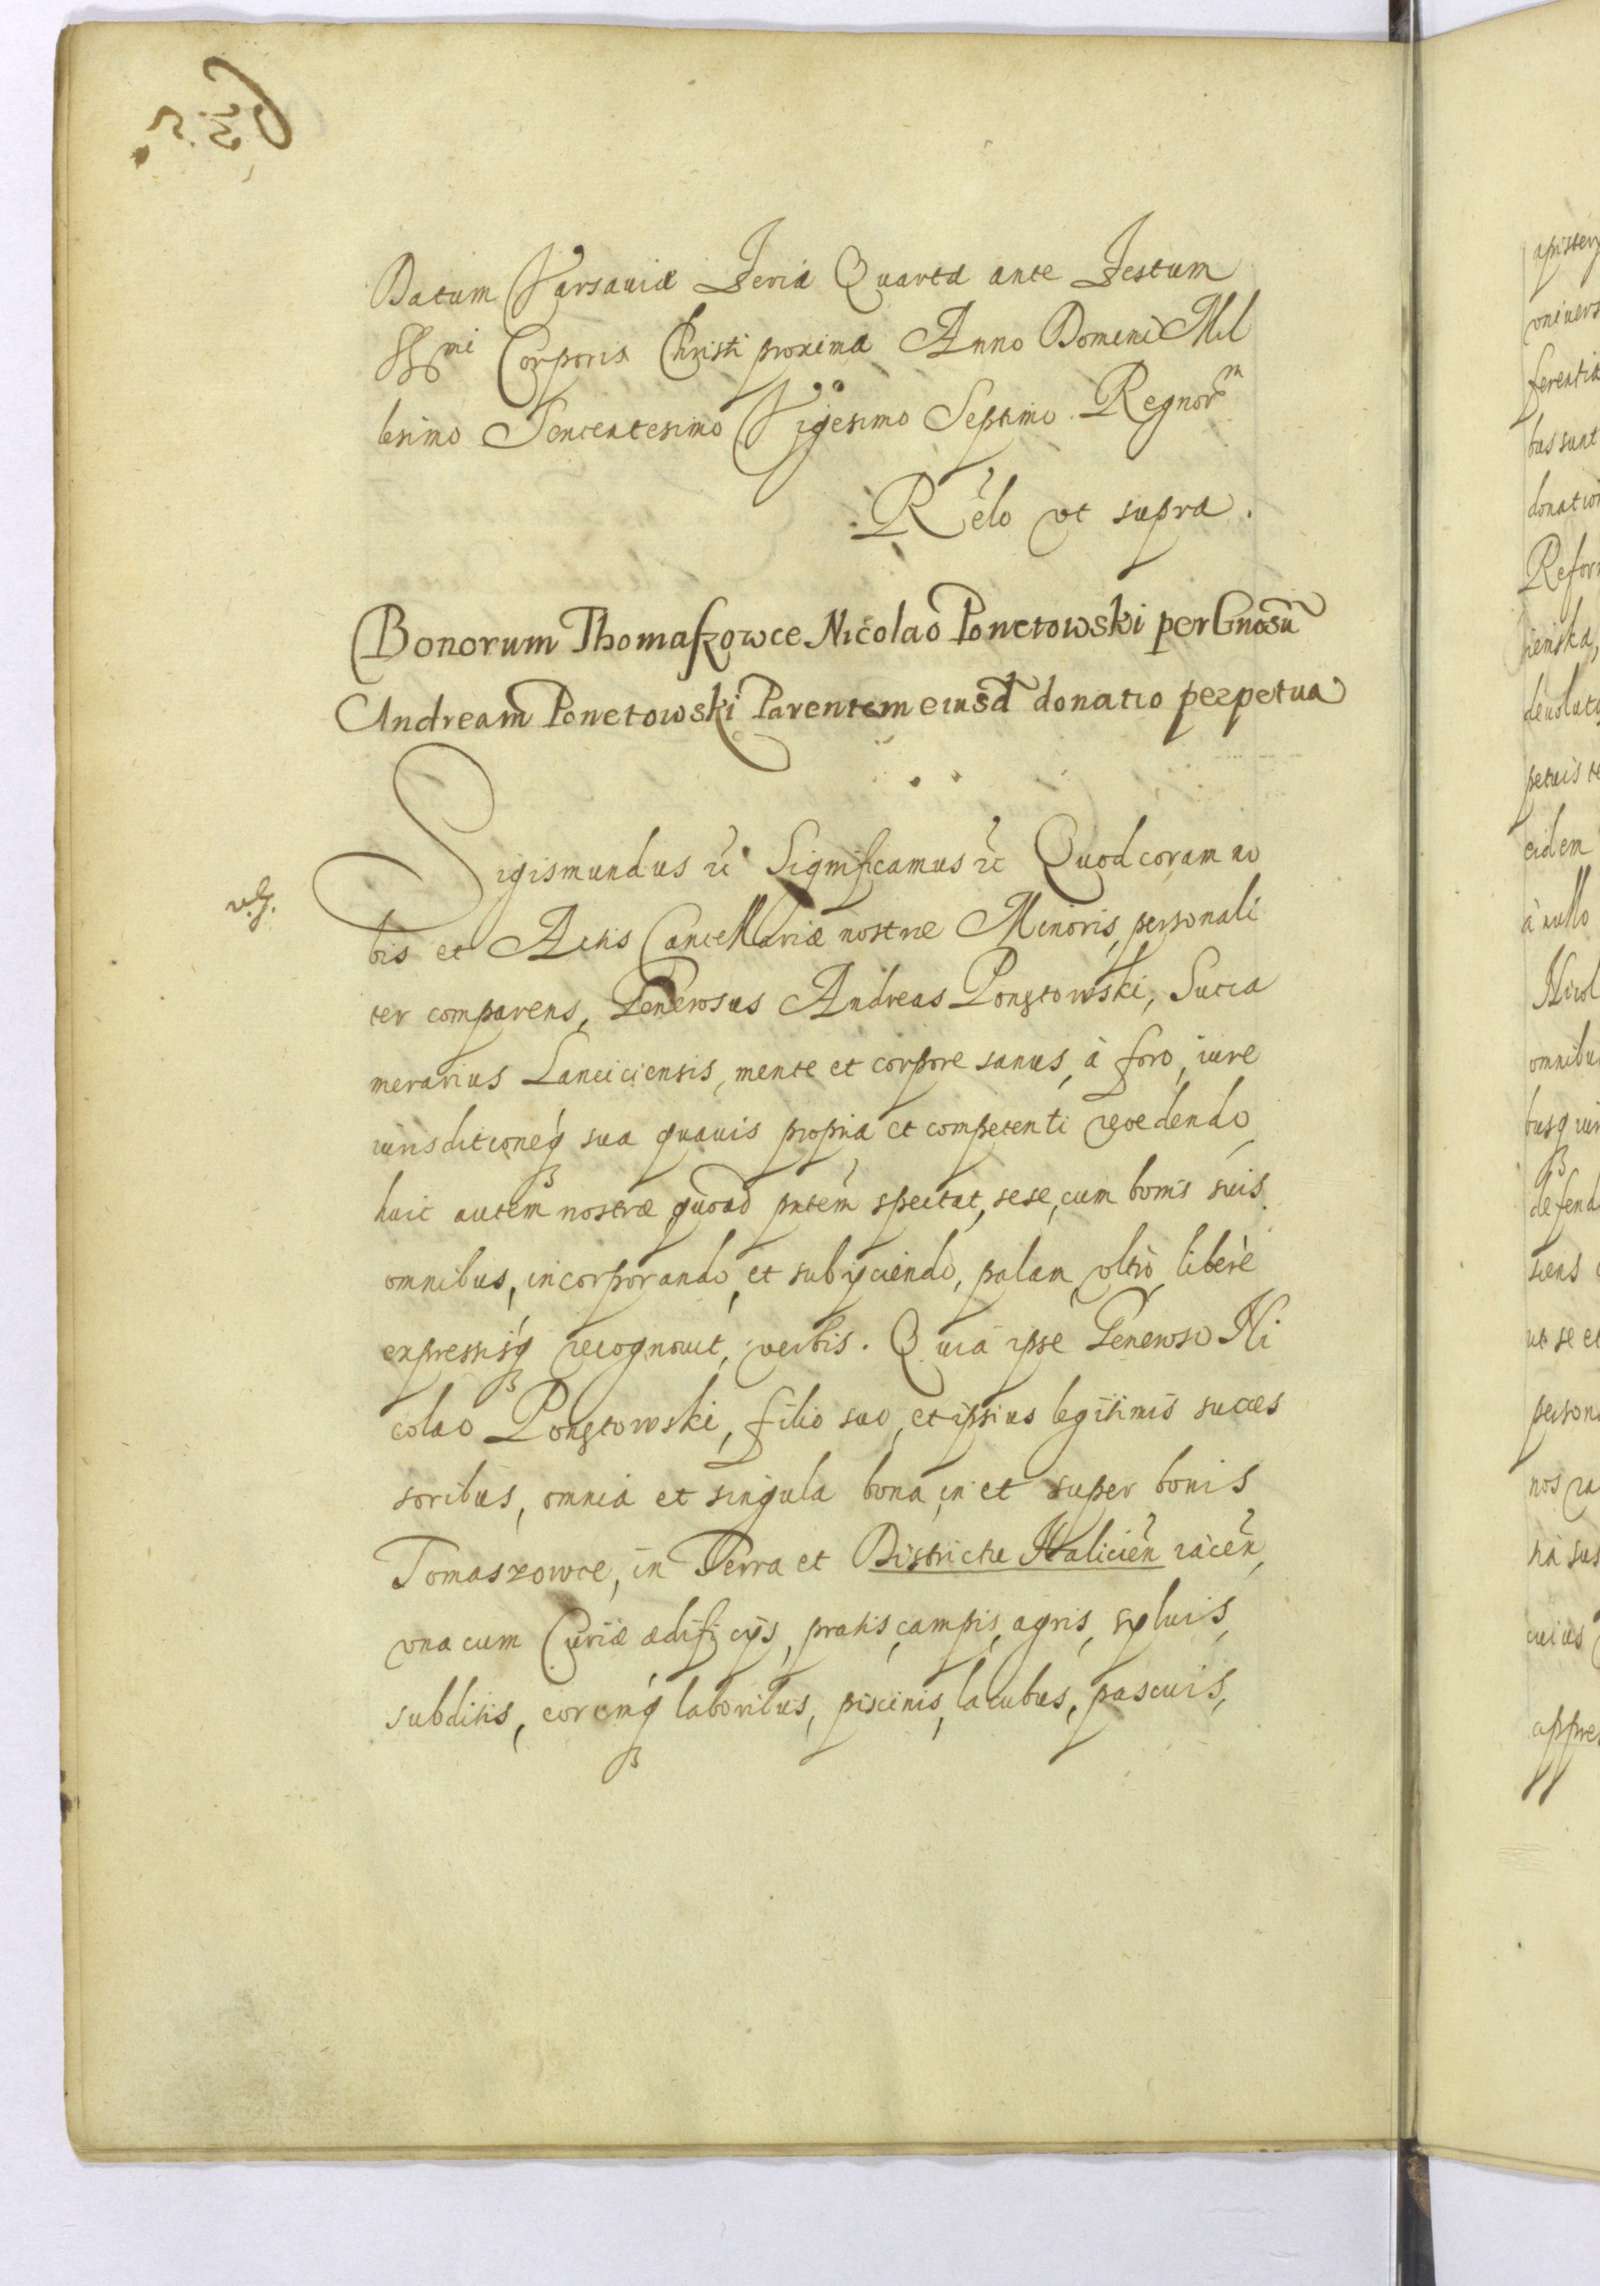 Datum Varsauiæ Feria Quarta ante Festum
SSmi Corporis Christi proxima Anno Domini Mil
lesimo Sencentesimo Vigesimo Septimo. Regnorm
Rēlo vt supra.
Bonorum Thomaszowce Nicolao Ponetowski per Gnosū
Andream Ponetowski Parentem eiusd donatio perpetua
Sigismundus ꝛc Significamus ꝛc Quod coram no
bis et Actis Cancellariæ nostræ Minoris, personali
ter comparens, Generosus Andreas Pongtowski, Succa
merarius Lanciciensis, mente et corpore sanus, à foro, iure
iurisditioneq sua quauis propria et competenti recedendo,
huic autem nostræ quoad pntem spectat, sese, cum bonis suis
omnibus, incorporando, et subijciendo, palam, vltrò, liberè
expressisq recognouit, verbis. Quia ipse Generoso Ni
colao Pongtowski, filio suo, et ipsius legitimis succes
soribus, omnia et singula bona, in et super bonis
Tomaszowce, in Terra et Districtu Haliciēn iacēn,
vna cum Curiæ ædificijs, pratis, campis, agris, syluis,
subditis, eorumq laboribus, piscinis, lacubus, pascuis,